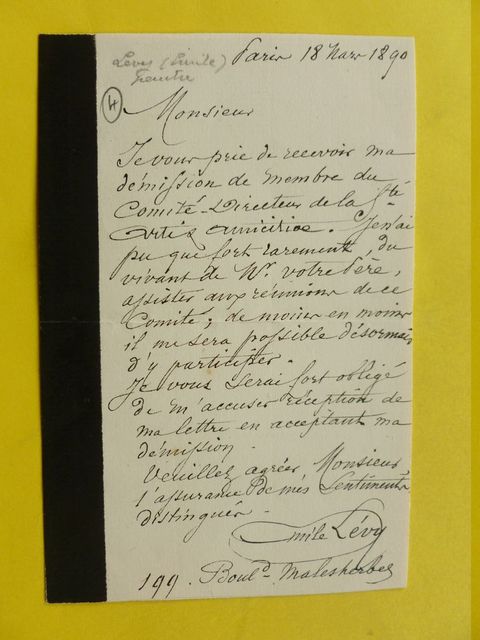 Levy (Emile)
Peintre
Paris 18 Mars 1890
4
Monsieur
Je vous prie de recevoir ma
démission de membre du
Comité-Directeur de la Sté
Artis amicitiae. Je n'ai
pu que fort rarement, du
vivant de Mr. votre Père,
assister aux réunions de ce
Comité; de moins en moins
il me sera possible désormais
d'y participer.
Je vous serai fort obligé
de m'accuser réception de
ma lettre en acceptant ma
démission.
Veuillez agréer, Monsieur,
l'assurance de mes Sentiments
distingués.
Emile Lévy
199. Bould. Malesherbes